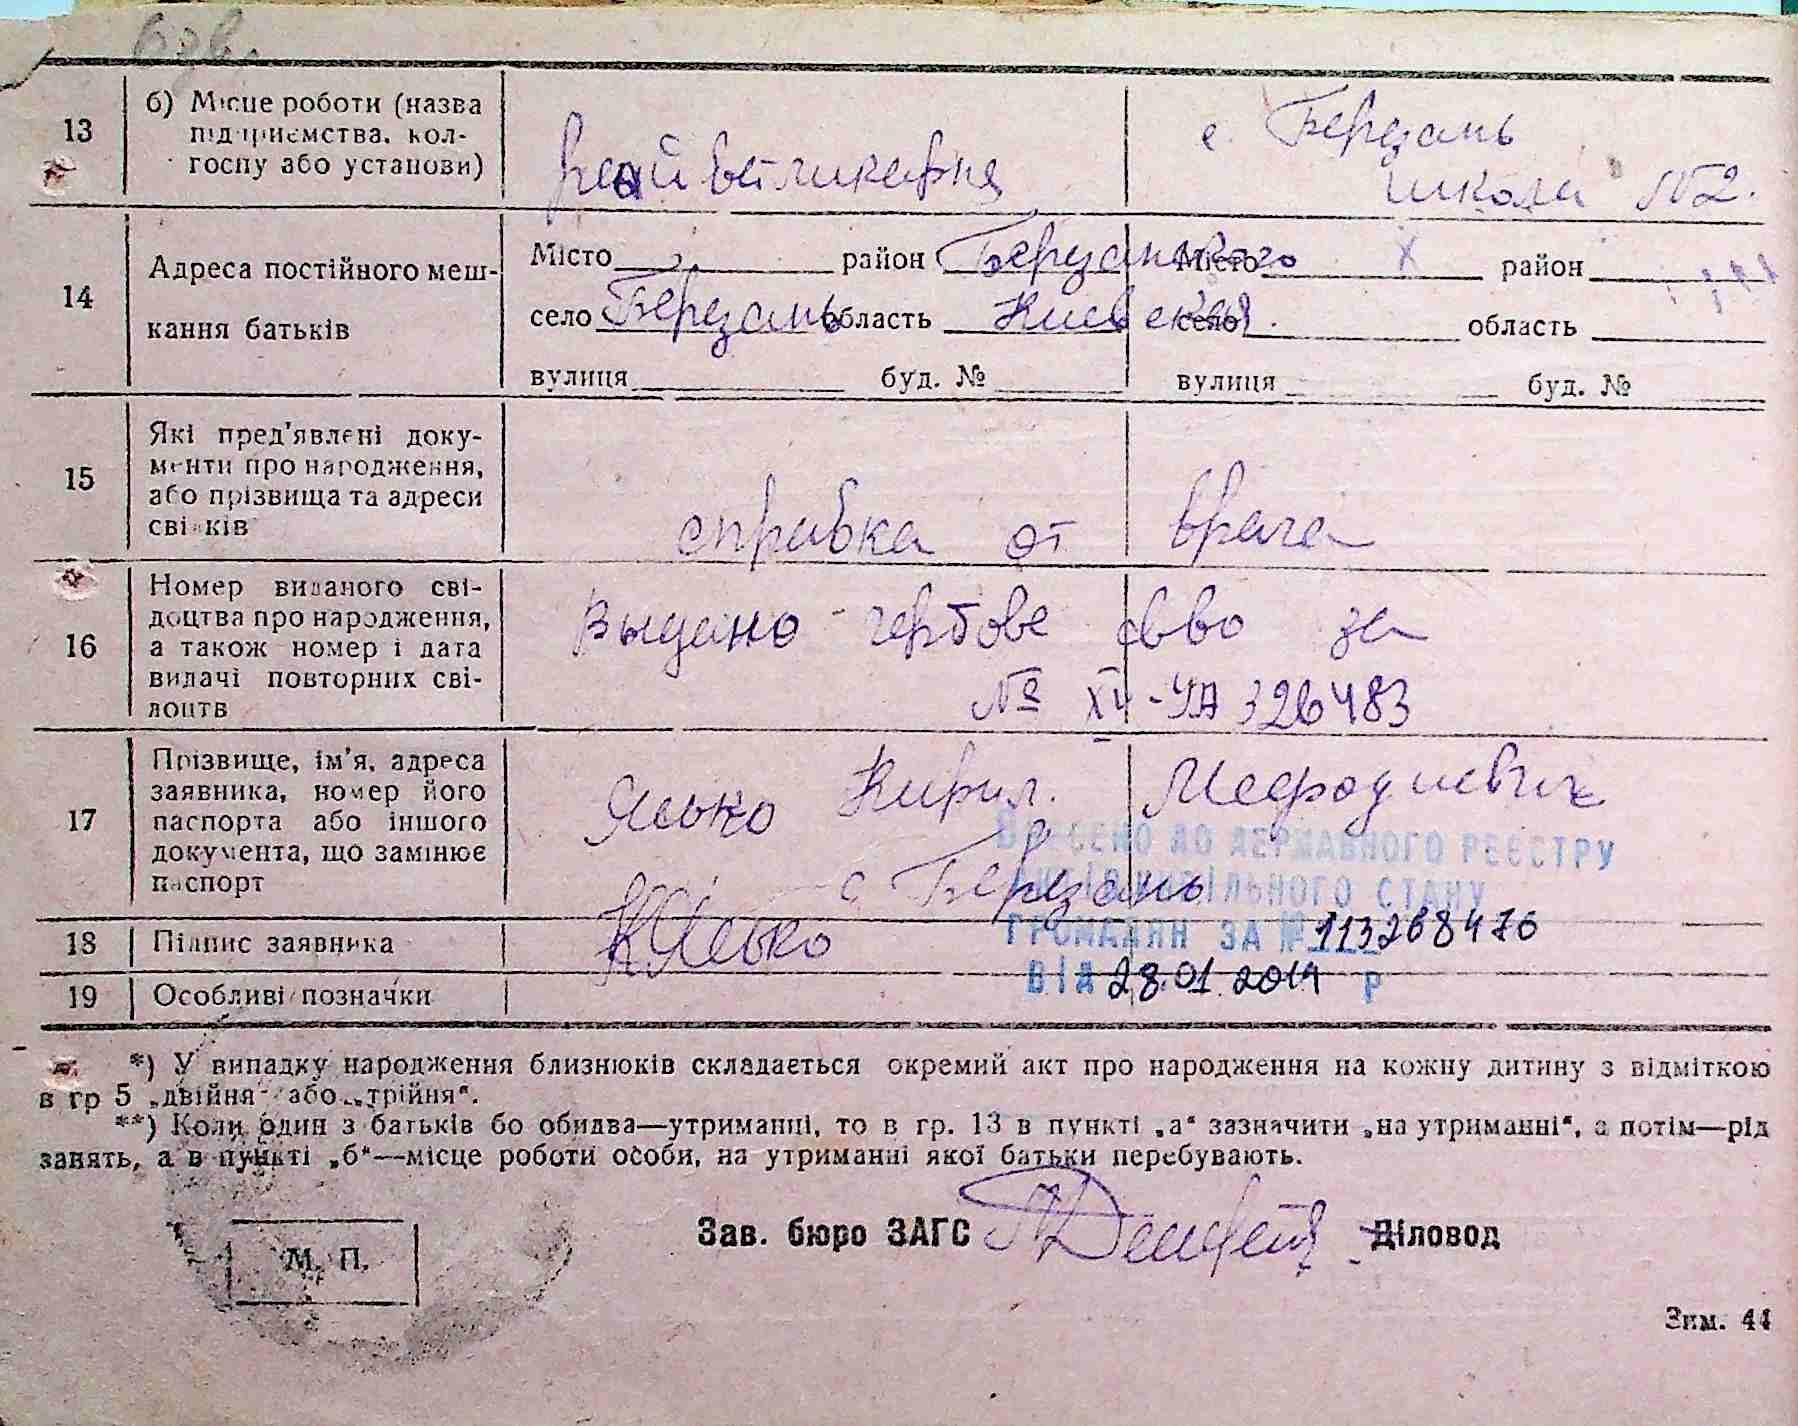 13
б) Місце роботи (назва
підприємства, кол-
госпу або установи)
райветликарня
с. Березань
школа №2.
14
Адреса постійного меш-
кання батьків
Місто район Березанського
село Березань область Киевская.
вулиця буд. №
Місто х район
село область
вулиця буд. №
15
Які пред'явлені доку-
менти про народження,
або прізвища та адреси
свідків
справка от врача
16
Номер виданого сві-
доцтва про народження,
а також номер і дата
видачі повторних сві-
доцтв
Выдано гербове св-во за
№ XIV-УА 326483
17
Прізвище, ім'я, адреса
заявника, номер його
паспорта або іншого
документа, що замінює
паспорт
Ясько Кирил. Мефодиевич
с Березань
18
Підпис заявника
КЯсько
19
Особливі позначки
ВНЕСЕНО ДО ДЕРЖАВНОГО РЕЄСТРУ
АКТІВ ЦИВІЛЬНОГО СТАНУ
ГРОМАДЯН ЗА № 113268476
ВІД 28.01.2019 р
*) У випадку народження близнюків складається окремий акт про народження на кожну дитину з відміткою
в гр 5 „двійня“ або „трійня“.
**) Коли один з батьків бо обидва—утриманці, то в гр. 13 в пункті „а“ зазначити „на утриманні“, а потім—рід
занять, а в пункті „б“—місце роботи особи, на утриманні якої батьки перебувають.
М. П.
Зав. бюро ЗАГС
Діловод
Зим. 44